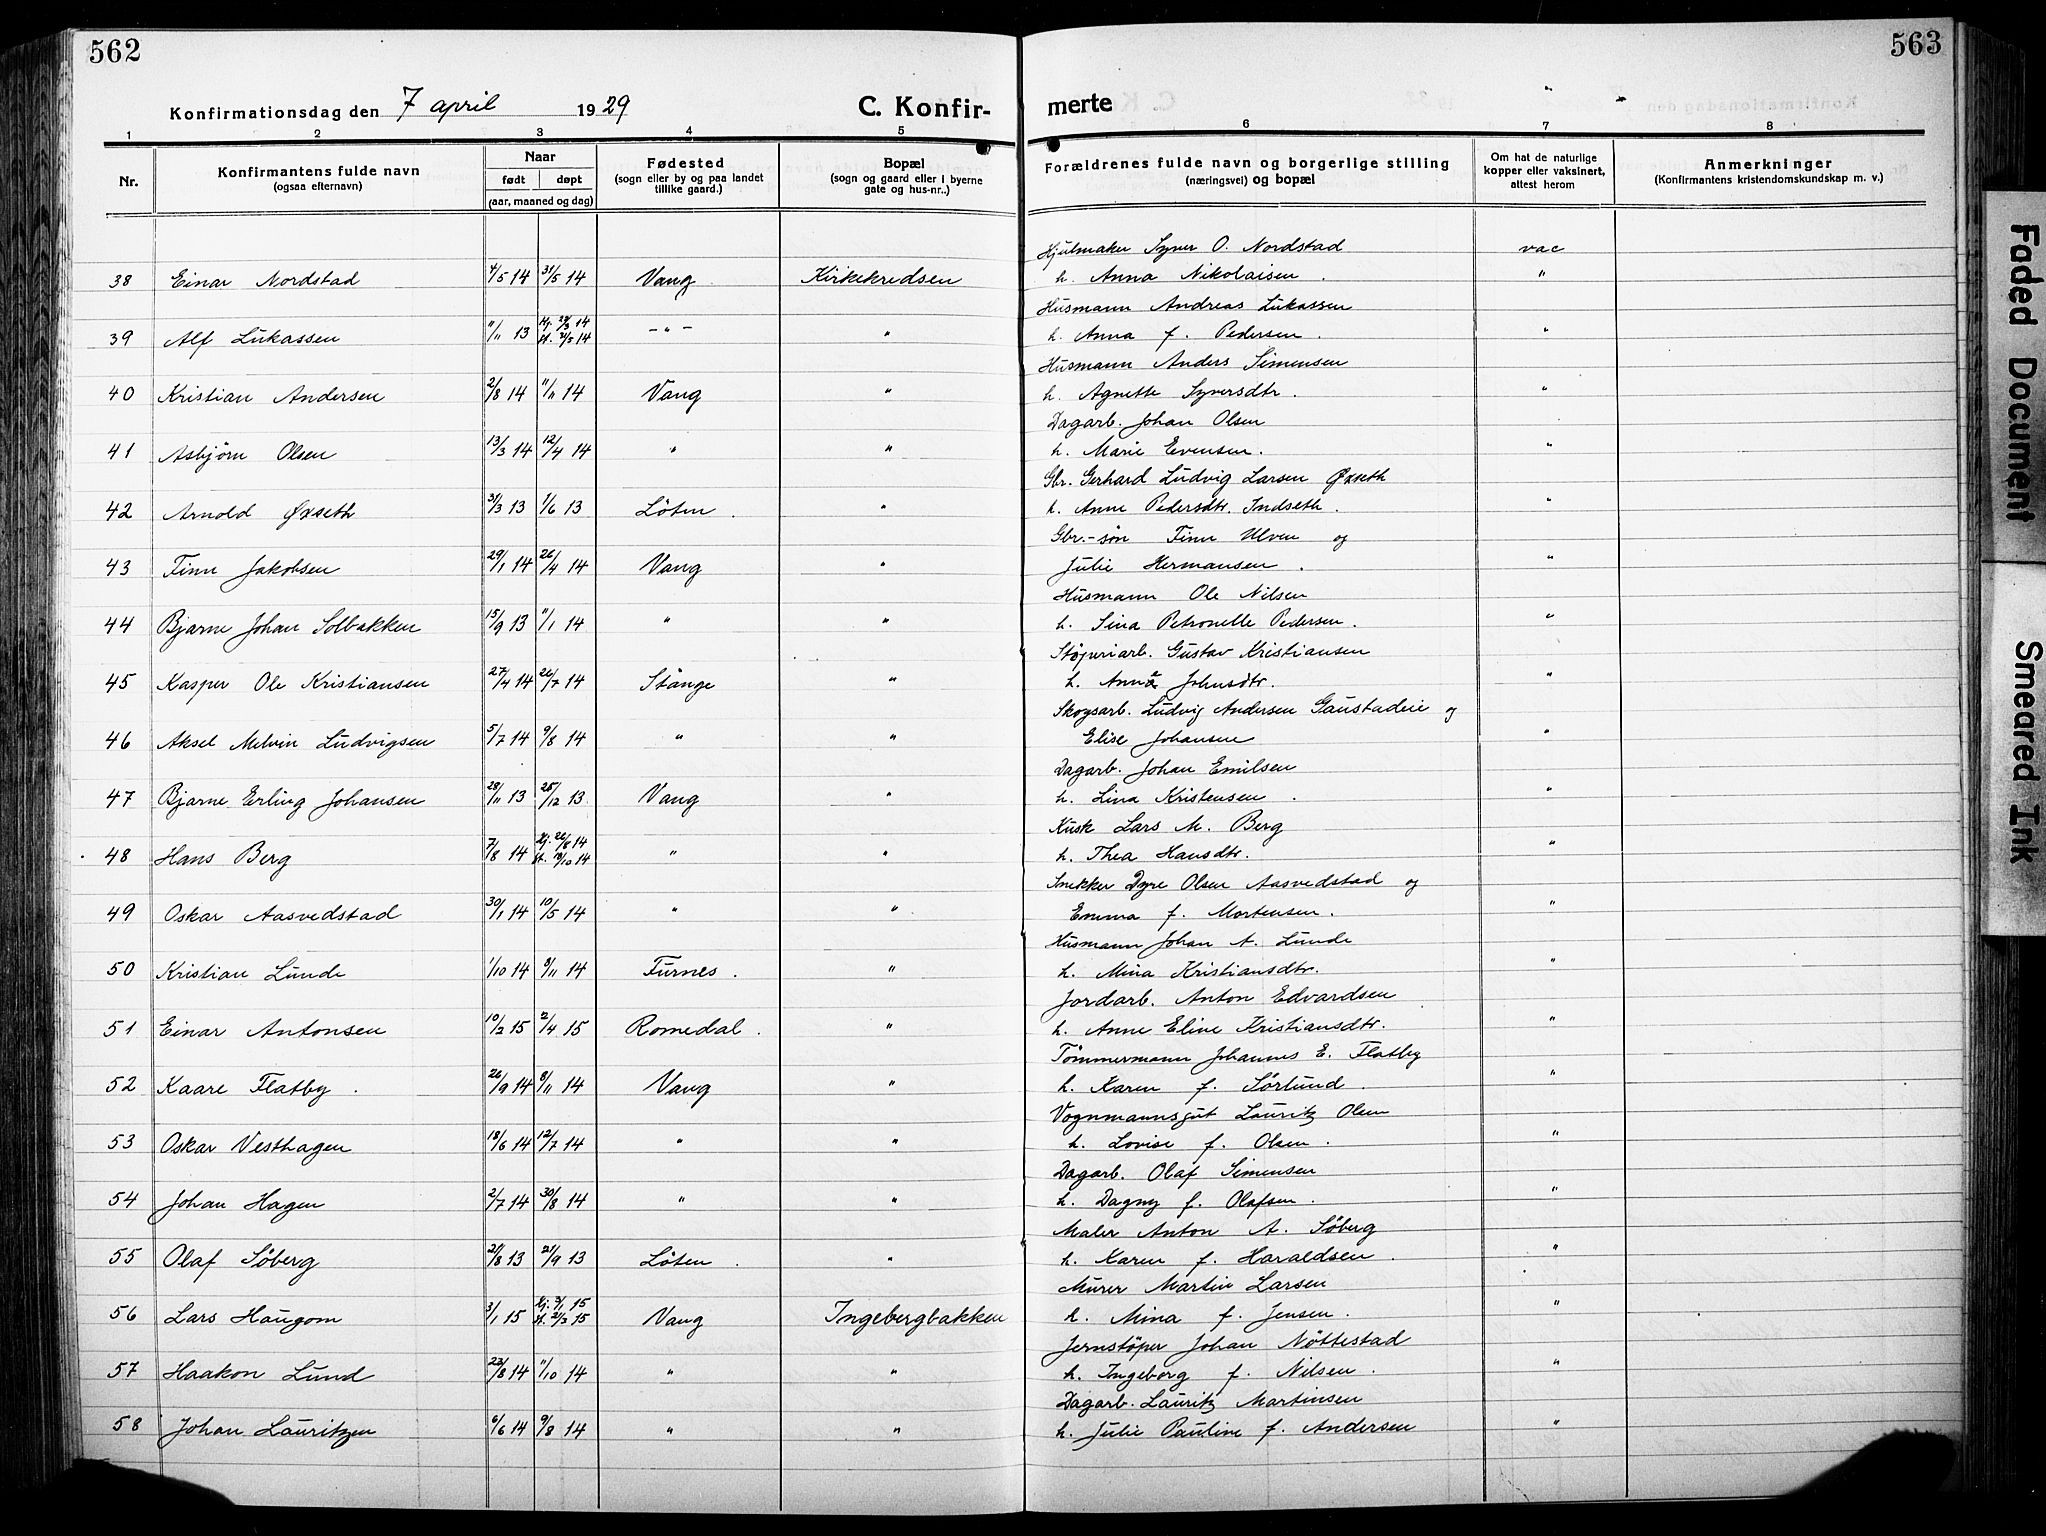 562
563
Konfirmationsdag den 7 april 1929
C. Konfir-
merte
1 2 3 4 5 6 7 8
Nr.
Konfirmantens fulde navn
(ogsaa efternavn)
Naar
født døpt
(aar, maaned og dag)
Fødested
(sogn eller by og paa landet
tillike gaard.)
Bopæl
(sogn og gaard eller i byerne
gate og hus-nr..)
Forældrenes fulde navn og borgerlige stilling
(næringsvei) og bopæl
Om hat de naturlige
kopper eller vaksinert,
attest herom
Anmerkninger
(Konfirmantens kristendomskundskap m. v.)
Hjulmaker Syver O. Nordstad vac
38 Einar Nordstad 4/5 14 31/5 14 Vang Kirkekredsen h. Anna Nikolaisen . "
Husmann Andreas Lukassen
39 Alf Lukassen 11/11 13 Hj. 29/3 14 k. 21/5 14 - " - " h. Anna f. Pedersen . "
Husmann Anders Simensen
40 Kristian Andersen 2/8 14 11/11 14 Vang " h. Agnette Syversdtr . "
Dagarb. Johan Olsen
41 Asbjörn Olsen 13/3 14 12/4 14 " " h. Marie Evensen. "
Gbr. Gerhard Ludvig Larsen Øxseth
42 Arnold Øxseth 31/3 13 1/6 13 Löten . " h. Anne Pedersdtr. Indseth . "
Gbr.-søn Finn Ulven og
43 Finn Jakobsen 29/1 14 26/4 14 Vang " Julie Hermansen . "
Husmann Ole Nilsen
44 Bjarne Johan Solbakken 15/9 13 11/1 14 " " h. Sina Petronelle Pedersen . "
Støperiarb. Gustav Kristiansen
45 Kasper Ole Kristiansen 27/4 14 26/7 14 Stange " h. Anna Johnsdtr. "
Skogsarb. Ludvig Andersen Gaustadeie og
46 Aksel Melvin Ludvigsen 5/7 14 9/8 14 " " Elise Johansen "
Dagarb. Johan Emilsen
47 Bjarne Erling Johansen 28/11 13 25/12 13 Vang " h. Lina Kristensen . "
Kusk Lars M. Berg
48 Hans Berg 7/8 14 Hj. 26/8 14 k. 18/10 14 " " h. Thea Hansdtr. "
Snekker Dyre Olsen Aasvedstad og
49 Oskar Aasvedstad 30/1 14 10/5 14 " " Emma f. Mortensen. "
Husmann Johan A. Lunde
50 Kristian Lunde 1/10 14 8/11 14 Furnes . " h. Mina Kristiansdtr. "
Jordarb. Anton Edvardsen
51 Einar Antonsen 10/2 15 2/4 15 Romedal . " h. Anne Eline Kristiansdtr. "
Tömmermann Johannes E. Flatby
52 Kaare Flatby . 26/9 14 8/11 14 Vang " h. Karen f. Sörlund . "
Vognmannsgut Lauritz Olsen
53 Oskar Vesthagen 18/6 14 12/7 14 " " h. Lovise f. Olsen . "
Dagarb. Olaf Simensen
54 Johan Hagen 2/7 14 30/8 14 " " h. Dagny f. Olafsen . "
Maler Anton A. Söberg
55 Olaf Söberg 21/8 13 21/9 13 Löten . " h. Karen f. Haraldsen . "
Murer Martin Larsen
56 Lars Haugom 3/1 15 Hj. 3/1 15 k. 21/3 15 Vang Ingebergbakken h. Mina f. Jensen . "
Jernstöper Johan Nöttestad
57 Haakon Lund 23/8 14 11/10 14 " " h. Ingeborg f. Nilsen . "
Dagarb. Lauritz Martinsen
58 Johan Lauritzen 6/6 14 9/8 14 " " h. Julie Pauline f. Andersen "
Faded Document
Smeared Ink